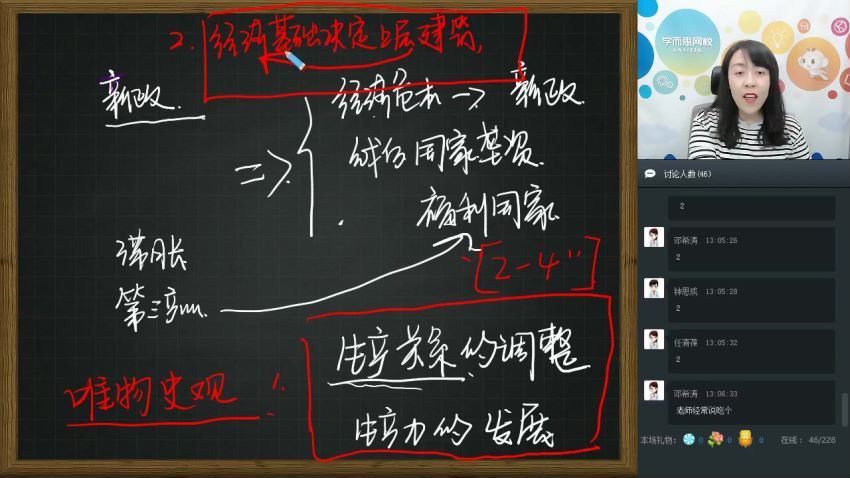 2. 经济基础决定上层建筑,
新政.
经济危机→新政.
战后国家垄资
福利国家
滞胀
[2-4'']
第三产业.
生产关系的调整
唯物史观
生产力的发展
学而思网校
讨论人数(46)
2
邓希涛 13:05:26
2
钟思成 13:05:28
2
任蒨葆 13:05:32
2
邓希涛 13:06:33
老师经常说吃个
本场礼物: 0 0 0 在线: 46/228